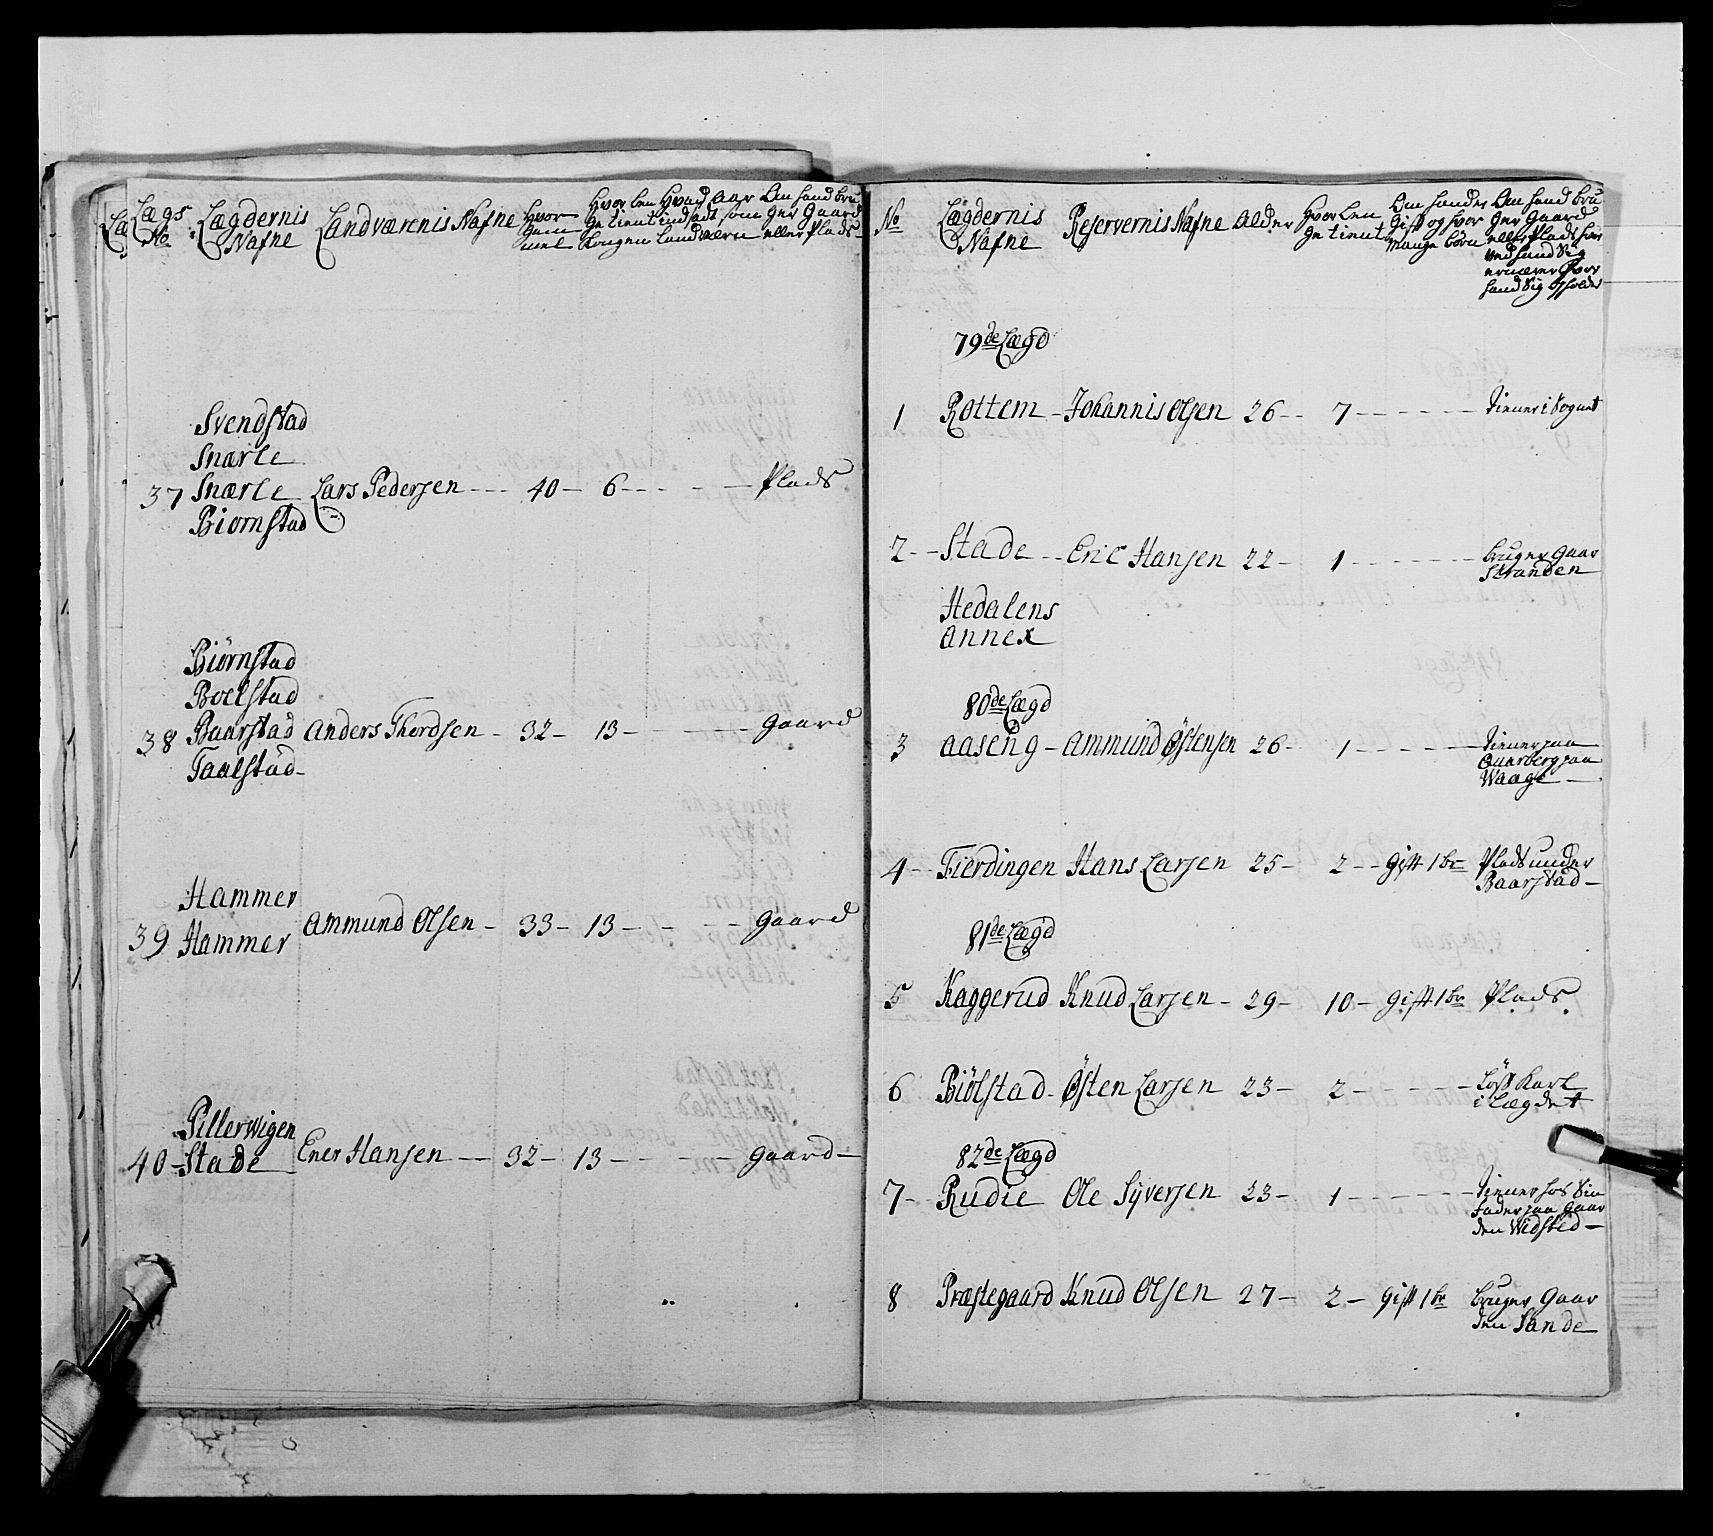 Lægs No
Lægdernis Nafne
Landværenis Nafne
Hvor Gam mel
Hvor len Ge tient Kongen
Hvad Aar indsadt som Landværn
Om hand bru Ger Gaard eller Plads
Svendstad
Snærle
37 Snærle Lars Pedersen 40 6 Plads
Biornstad
Biörnstad
Boelstad
38 Baarstad Anders Thordsen 32 13 Gaard
Taalstad
Hammer
39 Hammer Ammund Olsen 33 13 Gaard
Pillerwigen
40 Stade Ener Hansen 32 13 Gaard
No
Lægdernis Nafne
Reservernis Nafne
Alder
Hvor len Ge tient
Om hand er Gift og hvor mange börn
Om hand bru Ger Gaard eller Plads
ved hand Sig
ernærer Hvor
hand Sig opholder
79de Lægd
1 Rottem Johannis Olsen 26 7 tiener i Sognet
2 Stade Eric Hansen 22 1 bruger Gaar
Stranden
Hedalens
Annex
80de Lægd
3 Aaseng Ammund Østensen 26 1 tiener paa
Qvarberg paa
Waage
4 Fierdingen Hans Larsen 25 2 Gift 1 br Plads under
Baarstad
81de Lægd
5 Kaggerud Knud Larsen 29 10 Gift 1 br Plads
6 Biölstad Østen Larsen 23 2 Löss Karl
i Lægdet
82de Lægd
7 Rudie Ole Syversen 23 1 tiener hos Sin
Fader paa Gaar
den Widsted
8 Præstegaard Knud Olsen 27 2 Gift 1 br bruger Gaar
den Sande